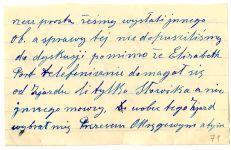 rzecz prosta żeśmy wysłali innego
Ob. a sprawy tej nie dopuściliśmy
do dyskusji pomimo że Elizabeth
Port telefonicznie domagał się
od Zjazdu li tylko Słowika a nie
innego mowcy. wobec tego Zjazd
wybrał mię Prezesem Okręgowym a tym
71